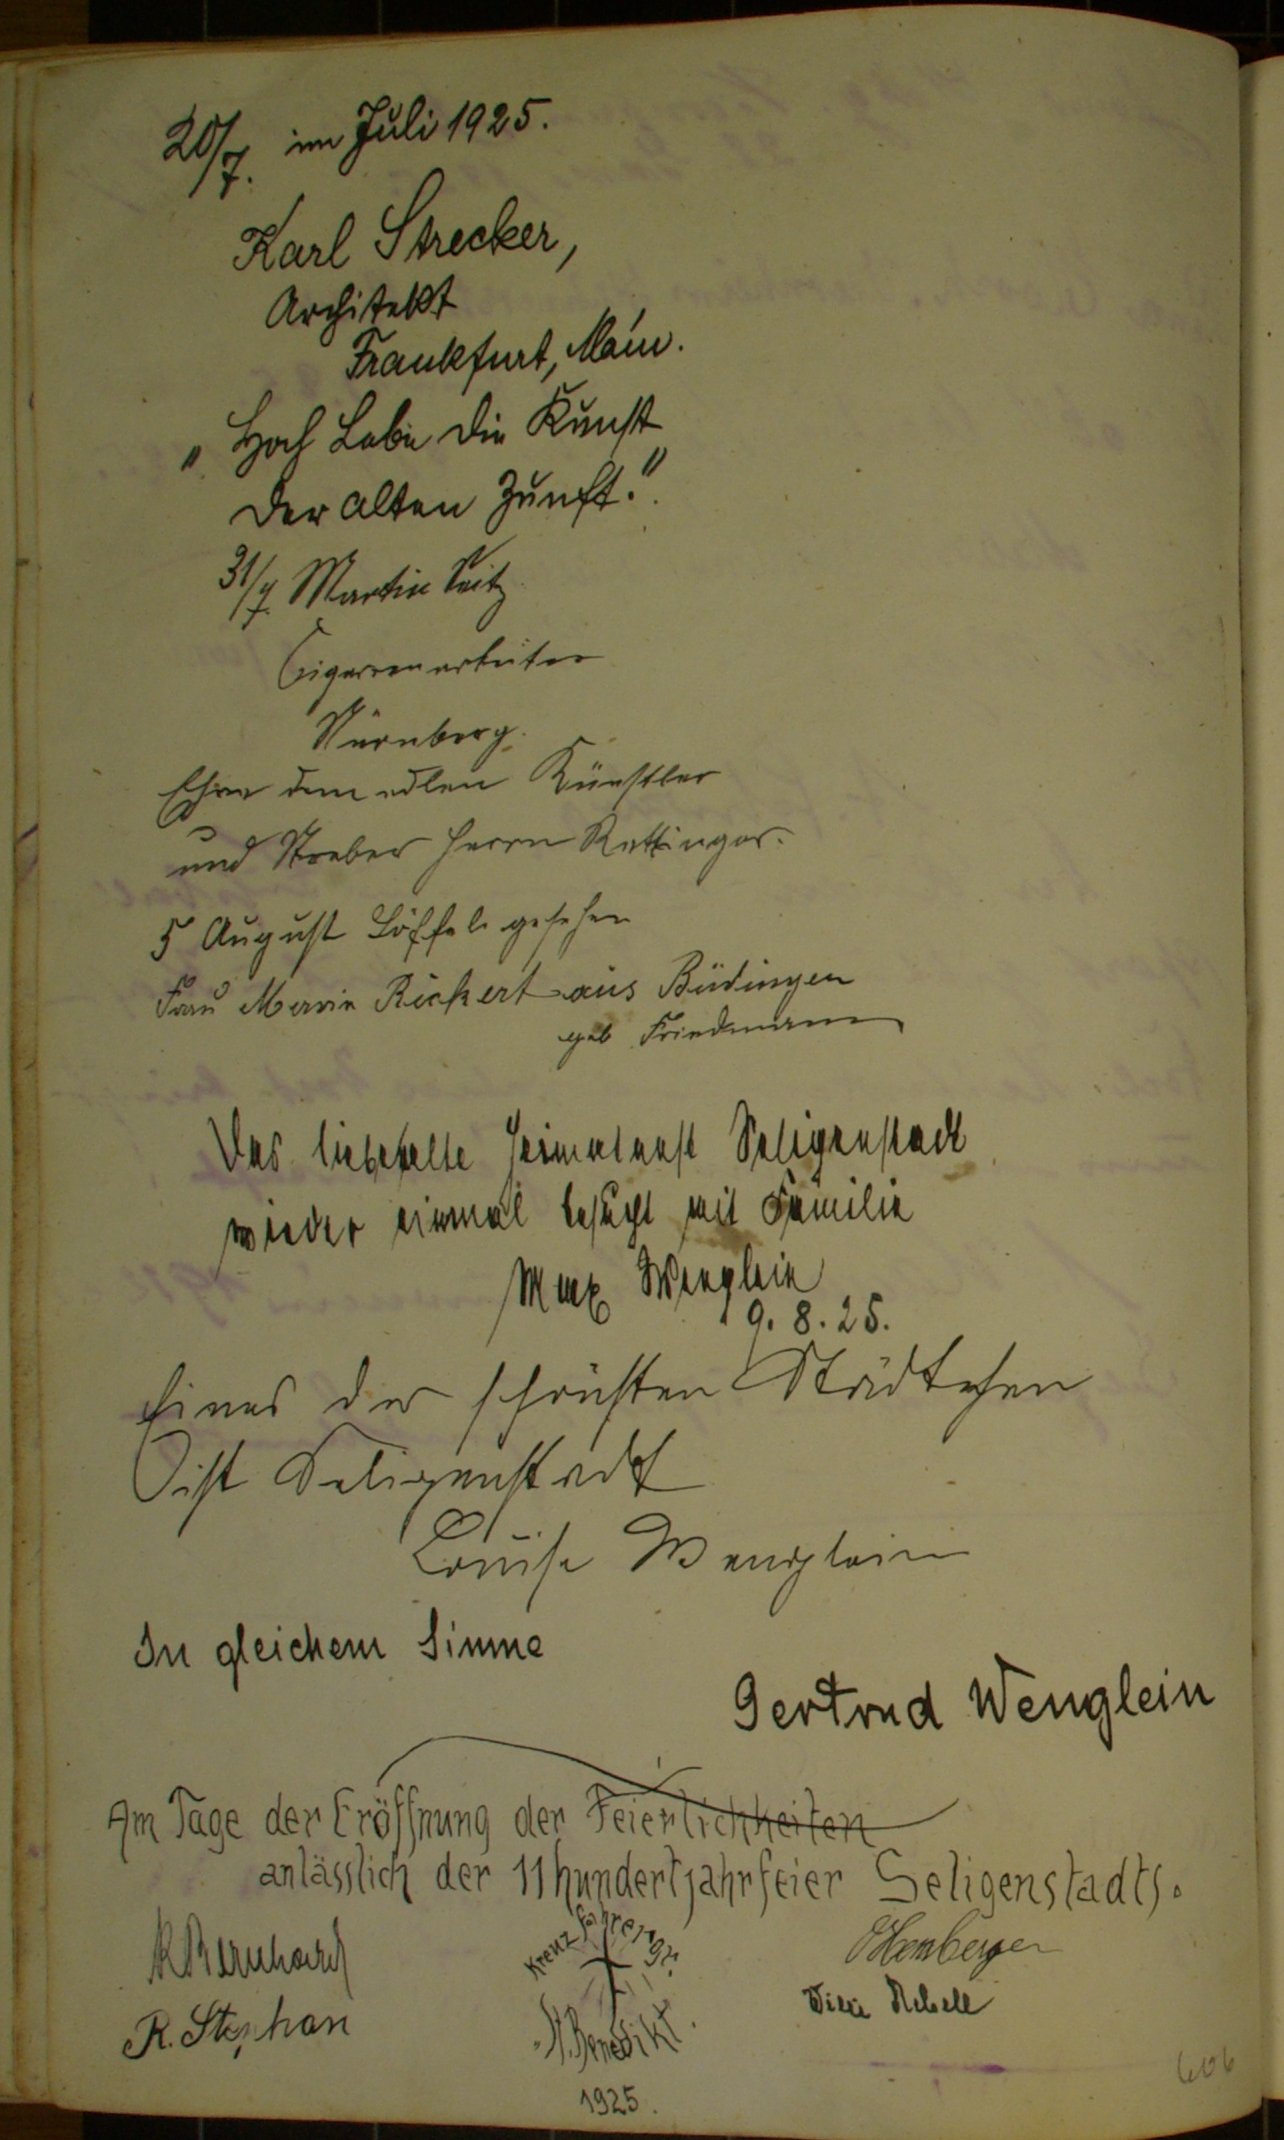 20/7. im Juli 1925.
Karl Strecker,
Architekt
Frankfurt, Main.
„ Hoch Lebe die Kunst
der alten Zunft."
31/7. Martin Seitz
Cigarrenarbeiter
Nürnberg.
Ehre dem edlen Künstler
und Streber Herrn Rettinger.
5 August Löffel gesehen
Frau Marie Rickert aus Büdingen
geb Friedmann
Das liebe alte Heimatnest Seligenstadt
wieder einmal besucht mit Familie
Max Wenglein
9. 8. 25.
Eines der schönsten Städtchen
ist Seligenstadt
Louise Wenglein
In gleichem Sinne
Gertrud Wenglein
Am Tage der Eröffnung der Feierlichkeiten
anlässlich der 11hundertjahrfeier Seligenstadts.
R Bernhard
R. Stephan
Kreuzfahrer-gr.
St. Benedikt.
1925.
606